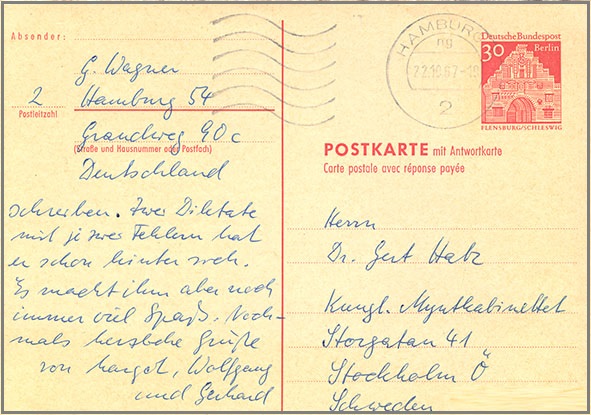 Absender:
G. Wagner
2 Hamburg 54
Postleitzahl
Grandweg 90c
(Straße und Hausnummer oder Postfach)
Deutschland
schreiben. Zwei Diktate
mit je zwei Fehlern hat
er schon hinter sich.
Es macht ihm aber noch
immer viel Spaß. Noch-
mals herzliche Grüße
von Margot, Wolfgang
und Gerhard
HAMBURG
mg
22.10.67-18
2
Deutsche Bundespost
30 Berlin
FLENSBURG/SCHLESWIG
POSTKARTE mit Antwortkarte
Carte postale avec réponse payée
Herrn
Dr. Gert Hatz
Kungl. Myntkabinettet
Storgatan 41
Stockholm Ö
Schweden